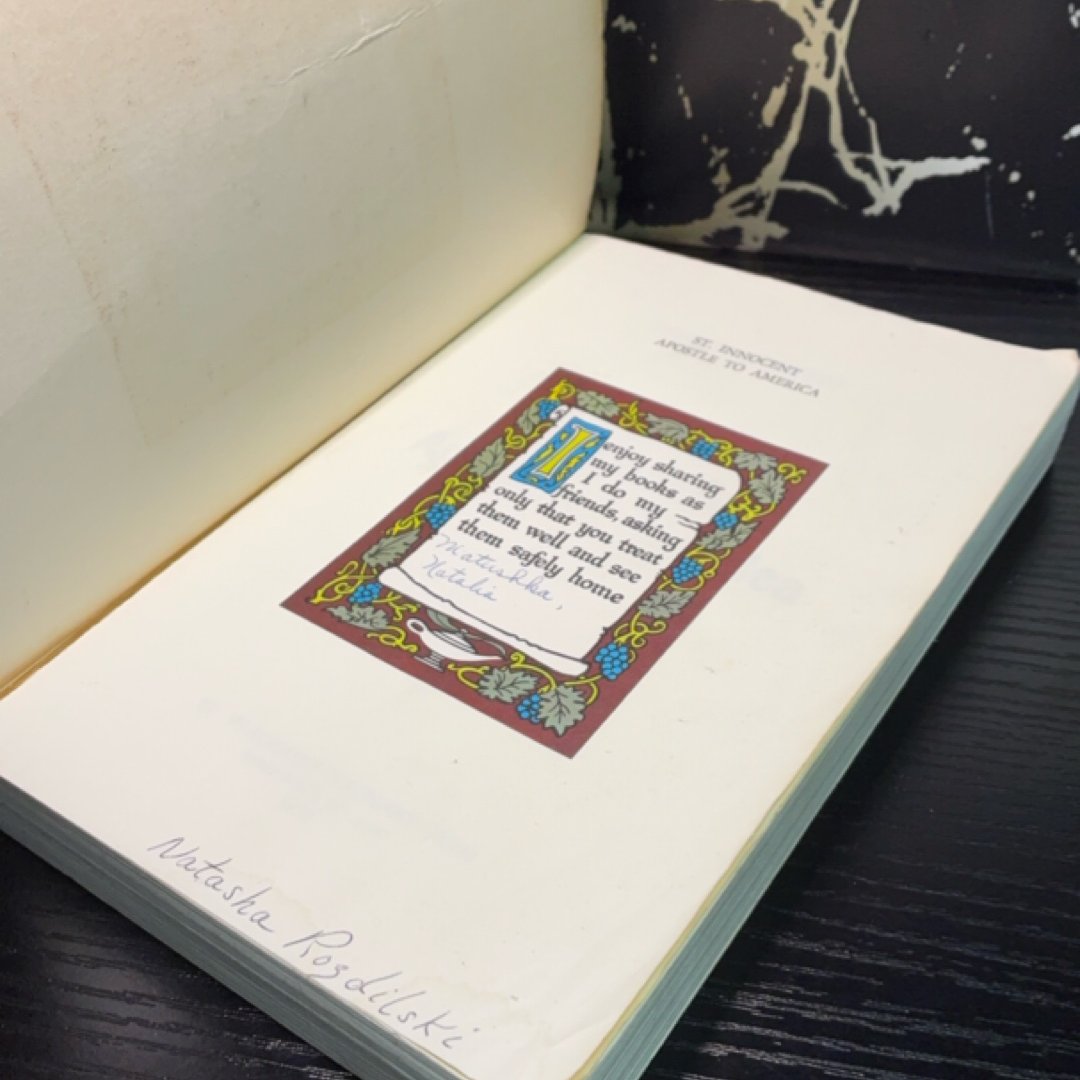 ST. INNOCENT
APOSTLE TO AMERICA
I enjoy sharing
my books as
I do my
friends, asking
only that you treat
them well and see
them safely home
Matushka,
Natalia
Natasha Rozdilski